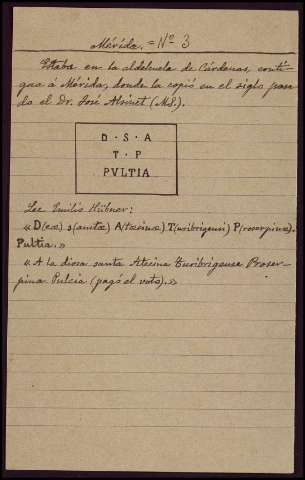 Mérida. = Nº 3
Estaba en la aldehuela de Cárdenas, conti-
gua á Mérida, donde la copió en el siglo pasa-
do el Dr. José Alsinet (MS.).
D · S · A
T · P
PVLTIA
Lee Emilio Hübner:
«D(eæ) s(anctæ) A(tæcinæ) T(uribrigensi) P(roserpinæ).
Pultia.»
«A la diosa santa Atecina Turibrigense Proser-
pina Pulcia (pagó el voto).»